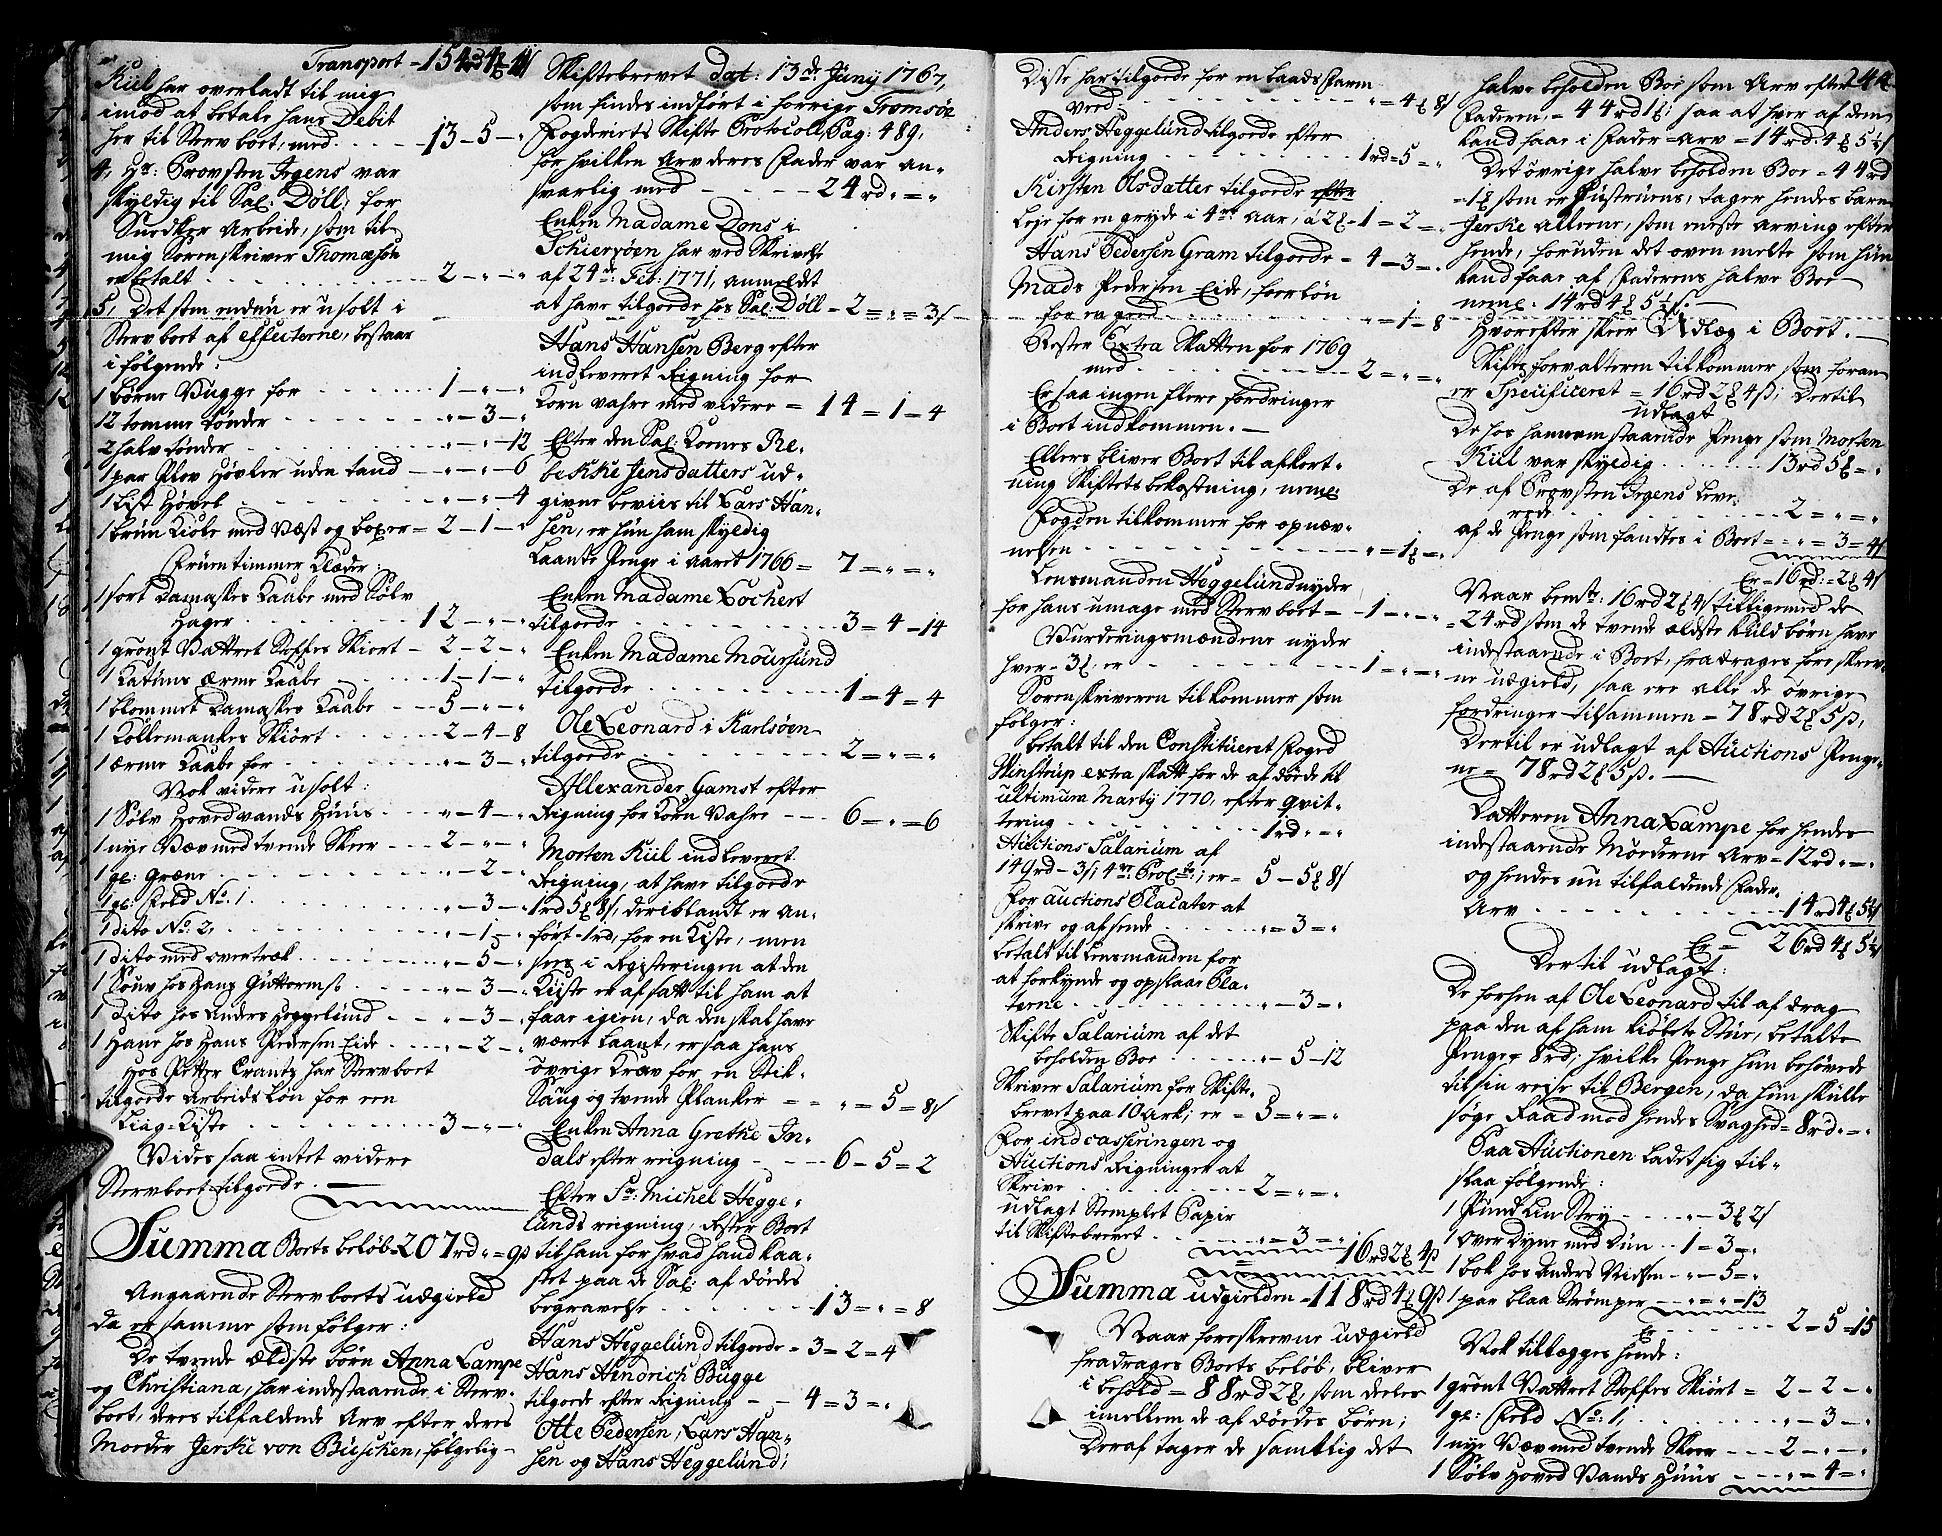 Transport - 154 rd 4 ₰ 11 s
Kiil har overladt til mig
imod at betale hans Debit
her til Stervboet, med - - - - 13 - 5 - "
4, Hr: Provsten Irgens var
skyldig til Sal: Döll: for
Snedker Arbeide, som til
mig Sorenskriver Thomæsøn
er betalt - - - - 2 - " - "
5, Det som endnu er usolt i
Stervboet af effecterne, bestaar
i følgende:
1 børne Vugge for - - - - 1 - " - "
12 tomme tønder - - - - " - 3 - "
2 halv tønder - - - - " - " - 12
1 par Plov Høvler uden tand - - " - " - 6
1 list Høvel - - - - " - " - 4
1 bruun Kiole med Væst og boxer = 2 - 1 - "
Fruentimmer Klæder:
1 sort Damaskes Kaabe med Sølv
Hager - - - - 12 - " - "
1 grønt Vattret Stoffes Skiort - 2 - 2 - "
1 Katuns ærme Kaabe - - 1 - 1 - "
1 blommet Damaskes Kaabe - - 5 - " - "
1 Kollemankes Skiørt - - - 2 - 4 - 8
1 ærme Kaabe for - - - - " - 3 - "
Nok videre usolt:
1 Sølv Hovedvands Huus - - - " - 4 - "
1 nye Væv med tvende Skeer - - 2 - " - "
1 gl: Græne - - - - " - 2 - "
1 gl: Feld No: 1 - - - - " - 3 - "
1 dito No: 2, - - - - " - 1 - "
1 dito med overtræk - - - - " - 5 - "
1 Souv hos Hans Guttormss - - - " - 3 - "
1 dito hos Anders Heggelund - - " - 3 - "
1 Hane hos Hans Pedersen Eide - - " - 2 - "
Hos Petter Crantz har Stervboet
tilgode Arbeids Løn for een
Liig-Kiste - - - - 3 - " - "
Vides saa intet videre
Stervboet tilgode. -
Summa Boets beløb 207 rd " = 9 s
Angaaende Stervboets udgield
da er samme som følger:
De tvende Ældste børn Anna Lampe
og Christiana, har indestaaende i Sterv-
boet, deres tilfaldende Arv efter deres
Moeder Jerske von Büschen, følgelig
Skiftebrevet dat: 13de Juny 1767,
som findes indført i forrige Tromsøe
Fogderiets Skifte Protocoll, Pag: 489,
for hvilken Arv deres Fader var an-
svarlig med - - - - 24 rd " = "
Enken Madame Dons i
Schiervøen har ved Skrivelse
af 24de Feb: 1771, anmeldt
at have tilgode hos Sal: Döll - 2 = " = 3 s
Hans Hansen Berg efter
indleveret Reigning for
Korn vahre med videre = 14 = 1 - 4
Efter den Sal: Kones Re-
bekke Jensdatters ud-
givne beviis til Lars Han-
sen, er hun ham skyldig
Laante Penge i aaret 1766 = 7 = " = "
Enken Madame Lochert
tilgode - - - - 3 = 4 - 14
Enken Madame Moursund
tilgode - - - - 1 = 4 = 4
Ole Leonard i Karlsøen
tilgode - - - - 2 = " = "
Allexander Gamst efter
Reigning for Korn Vahre - - - 6 = " = 6
Morten Kiil indleveret
Reigning, at have tilgode
1 rd 5 ₰ 8 s, deriblandt er an-
ført 1 rd, for en Kiste, men
sees i Registeringen at den
Kiiste er afsatt til ham at
faae igien, da den skal have
været laant, er saa hans
øvrige Kræv for en Stik-
Saug og tvende Planker - - " = 5 = 8 s
Enken Anna Grethe In-
dals efter reigning - - - - 6 - 5 = 2
Efter Sr: Michel Hegge-
lunds reigning, rester Boet
til ham for hvad hand kaa-
stet paa de Sal: afdødes
begravelse - - - - 13 = " = 8
Hans Heggelund tilgode - 3 = 2 = 4
Hans Hindrich Bugge
tilgode efter Reigning - - 4 = 3 = "
Otte Pedersen, Lars Han-
sen og Hans Heggelund,
Disse har tilgode for en baads Farm
Veed - - - - " = 4 ₰ 8 s
Anders Heggelund tilgode efter
Reigning - - - - 1 rd = 5 = "
Kirsten Olsdatter tilgode efter
Leje for en gryde i 4re aar, a 2 ₰ - 1 = 2 = "
Hans Pedersen Gram tilgode - 4 = 3 = "
Mads Pedersen Eide, for løn
- - - - " = 1 - 8
Rester Extra Skatten for 1769
med - - - - 2 = " = "
Er saa ingen flere fordringer
i Boet indkommen. -
Ellers bliver Boet til afkort-
ning Skiftets bekostning, neml:
Fogden tilkommer for opnæv-
nelsen - - - - " = 1 ₰ = "
Lensmanden Heggelund nyder
for hans umage med Stervboet - - 1 - " = "
Vurderingsmændene nyder
hver - 3 ₰, er - - - - 1 = " = "
Sorenskriveren tilkommer som
følger:
betalt til den Constitueret Foged
Winstrup extra skatt for de afdøde til
ultimum Marty 1770, efter qvit-
tering - - - - 1 rd " = "
Auctions Salarium af
149 rd - 3 s, 4re Proc:to, er - 5 - 5 ₰ 8 s
For auctions Placater at
skrive og afsende - - - - " = 3 = "
betalt til Lensmanden for
at forkynde og opslaae Pla-
terne - - - - " - 3 = "
Skifte Salarium af det
beholden Boe - - - - " - 5 - 12
Skriver Salarium for Skifte-
brevet paa 10 ark, er - 3 = " = "
For indcasseringen og
Auctions Reigninger at
Skrive - - - - 2 = " = "
udlagt Stemplet Papir
til Skiftebrevet - - - - " = 3 = "
16 rd 2 ₰ 4 s
Summa udgielden - 118 rd 4 ₰ 9 s
Naar foreskrevne udgield
fradrages Boets beløb, bliver
i behold = 88 rd 2 ₰, som deeles
imellem de afdødes børn;
Deraf tager de samtlig det
244
halve beholden Boe som Arv efter
Faderen, = 44 rd 1 ₰, saa at hver af dem
Land faar i Fader-Arv = 14 rd: 4 ₰ 5 1/3 s
Det øvrige halve beholden Boe = 44 rd
- 1 ₰ som er Hustruens, tager hendes barn
Jerske alleene, som eneste arving efter
hende, foruden det oven melte som hun
Land faar af Faderens halve Boe
neml: 14 rd 4 ₰ 5 1/3 s. -
Hvorefter skeer Udlæg i Boet. -
Skifteforvalteren tilkommer som foran
er Specificeret = 16 rd 2 ₰ 4 s; Dertil
udlagt
De hos ham staaende Penge som Morten
Kiil var skyldig - - - - 13 rd 5 ₰ = "
De af Provsten Irgens leve-
rede - - - - 2 = " = "
af de Penge som fandtes i Boet = - " = 3 = 4 s
Er = 16 rd: = 2 ₰ 4 s
Naar bem:te: 16 rd 2 ₰ 4 s tilligemed de
= 24 rd som de tvende ældste Kuldbørn have
indestaaende i Boet, fradrages foreskrev-
ne udgield, saa ere alle de øvrige
fordringer tilsammen = 78 rd 2 ₰ 5 s,
Dertil er udlagt af Auctions Penge-
ne = 78 rd 2 ₰ 5 s. -
Datteren Anna Lampe for hendes
indestaaende Moederne Arv = 12 rd " = "
og hendes nu tilfaldende Fader-
Arv - - - - 14 rd 4 ₰ 5 1/3 s
Er = 26 rd 4 ₰ 5 1/3 s
Dertil udlagt:
De forhen af Ole Leonard til afdrag
paa den af ham kiøbte Stue, betalte
Penge 8 rd, hvilke Penge hun behøvede
til sin rejse til Bergen, da hun skulle
søge Raad mod hendes Svaghed = 8 rd " = "
Paa Auctionen ladet sig til-
slaa følgende:
1 Pund Liin Stry - - - - " - 3 ₰ 2 s
1 over dyne med Duun - - 1 = 3 = "
1 bok hos Anders Nidsen - " - 5 = "
1 par blaa Strømper - - - " = " = 13
Er - - - - 2 = 5 = 15
Nok tillægges hende:
1 grønt Vattret Stoffes Skiørt = 2 - 2 - "
1 gl: Feld No: 1, - - - - " - 3 - "
1 nye Væv med tvende Skeer - - - 2 - " - "
1 Sølv Hoved Vands Huus - - - " = 4 = "